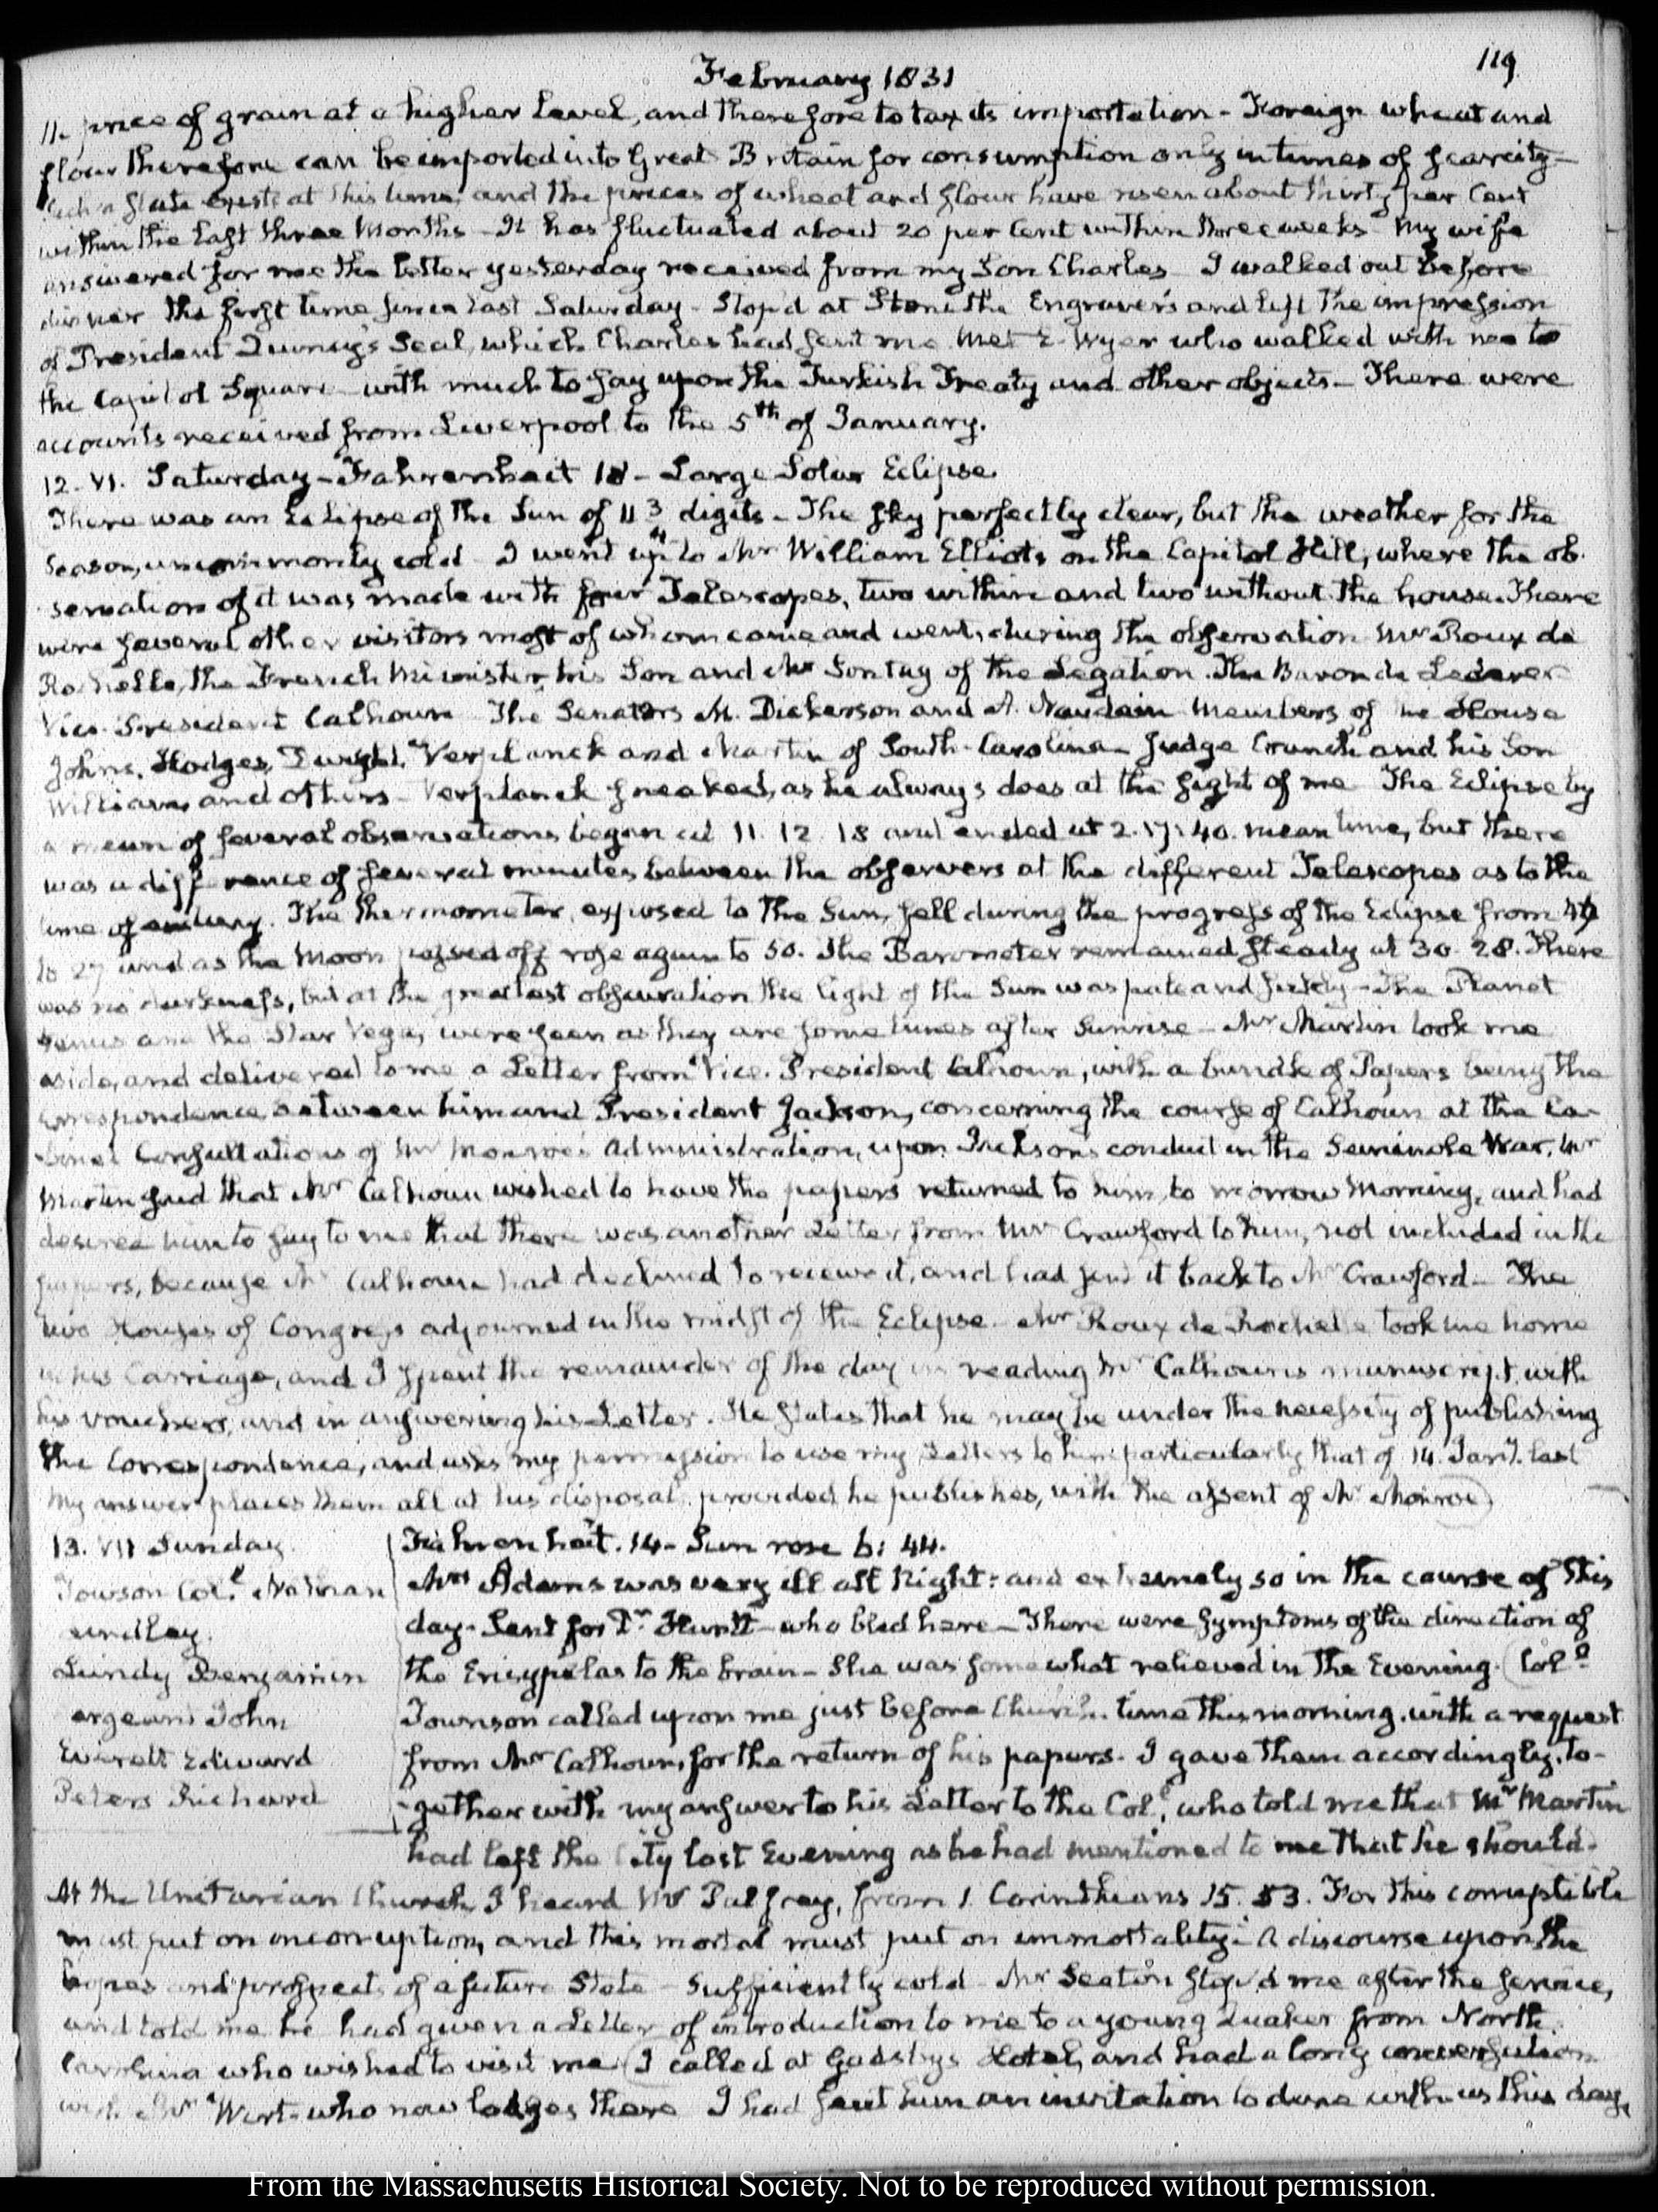 February 1831
119
11. price of grain at a higher level, and therefore to tax its importation - Foreign wheat and
flour therefore can be imported into Great Britain for consumption only in times of scarcity -
Such a state exists at this time, and the prices of wheat and flour have risen about thirty per Cent
within the last three Months - It has fluctuated about 20 per Cent within three weeks - My wife
answered for me the letter yesterday received from my Son Charles - I walked out before
dinner the first time since last Saturday - Stop'd at Stone the Engraver's and left the impression
of President Quincy's Seal, which Charles had sent me. Met E. Wyer who walked with me to
the Capitol Square - with much to say upon the Turkish Treaty and other objects - There were
accounts received from Liverpool to the 5th of January.
12. VI. Saturday - Fahrenheit 18 - Large Solar Eclipse.
There was an Eclipse of the Sun of 11 3/4 digits - The sky perfectly clear, but the weather for the
Season, uncommonly cold - I went up to Mr William Elliot's on the Capitol Hill, where the ob-
servation of it was made with four Telescopes, two within and two without the house. There
were several other visitors most of whom came and went, during the observation Mr Roux de
Rochelle, the French Minister, his Son and Mr Sontag of the Legation. The Baron de Lederer
Vice-President Calhoun - The Senators M. Dickerson and A. Naudain - Members of the House
Johns, Hodges, Dwight, Verplanck and Martin of South-Carolina - Judge Cranch and his Son
William, and others - Verplanck sneaked, as he always does at the sight of me - The Eclipse by
a mean of several observations began at 11. 12. 18 and ended at 2. 17: 40. mean time, but there
was a difference of several minutes between the observers at the different Telescopes as to the
time of ending. The thermometer, exposed to the Sun, fell during the progress of the Eclipse from
to 27 and as the Moon passed off rose again to 50. The Barometer remained steady at 30. 28. There
was no darkness, but at the greatest obscuration the light of the Sun was pale and sickly - The Planet
Venus and the Star Vega, were seen as they are sometimes after Sunrise - Mr Martin took me
aside, and delivered to me a Letter from Vice-President Calhoun, with a bundle of Papers being the
correspondence between him and President Jackson, concerning the course of Calhoun at the Ca-
binet Consultations of Mr Monroe's Administration, upon Jackson's conduct in the Seminole War. Mr
Martin said that Mr Calhoun wished to have the papers returned to him to morrow Morning, and had
desired him to say to me that there was another Letter from Mr Crawford to him, not included in the
papers, because Mr Calhoun had declined to receive it, and had sent it back to Mr Crawford - The
two Houses of Congress adjourned in the midst of the Eclipse - Mr Roux de Rochelle took me home
in his Carriage, and I spent the remainder of the day in reading Mr Calhoun's manuscript, with
his vouchers, and in answering his Letter. He states that he may be under the necessity of publishing
the Correspondence, and asks my permission to use my Letters to him particularly that of 14. Jany. last
My answer places them all at his disposal, provided he publishes, with the assent of Mr Monroe)
13. VII Sunday.
Towson Col.l Nathan
Lundy Benjamin
John
Everett Edward
Peters Richard
Fahrenheit. 14 - Sun rose 6: 44.
Mrs Adams was very ill all Night: and extremely so in the course of this
day - Sent for Dr Huntt - who bled here - There were symptoms of the direction of
the Erisypelas to the brain - She was somewhat relieved in the Evening. (Col.l
Townson called upon me just before Church time this morning, with a request
from Mr Calhoun, for the return of his papers - I gave them accordingly, to-
-gether with my answer to his Letter to the Col.l, who told me that Mr Martin
had left the City last Evening as he had mentioned to me that he should -
At the Unitarian Church, I heard Mr Palfrey, from 1. Corinthians 15. 53. For this corruptible
must put on incorruption, and this mortal must put on immortality: A discourse upon the
hopes and prospects of a future State - Sufficiently cold - Mr Seaton stop'd me after the service,
and told me he had given a Letter of introduction to me to a young Quaker from North.
Carolina who wished to visit me (I called at Gadsby's Hotel, and had a long conversation
with Mr Wirt - who now lodges there - I had sent him an invitation to dine with us this day,
From the Massachusetts Historical Society. Not to be reproduced without permission.